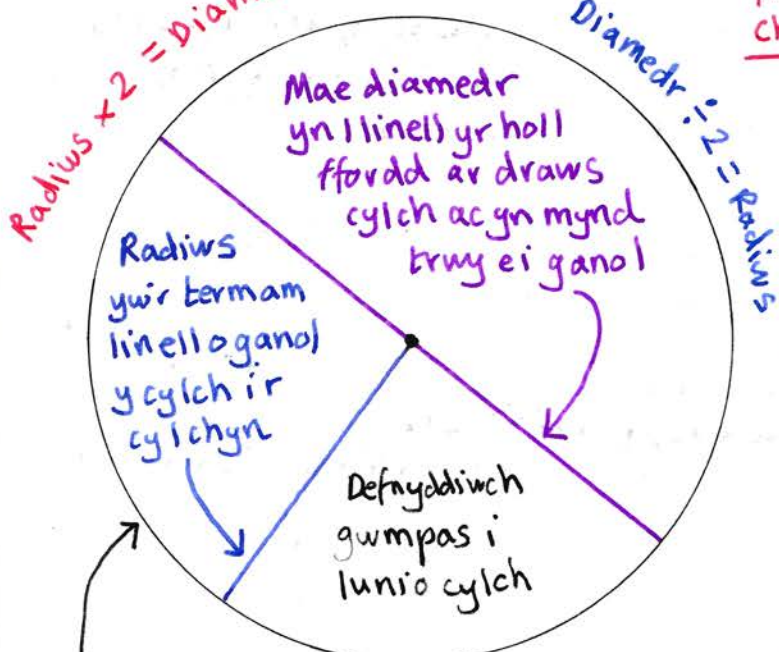 Radiws x 2 = Diam
Diamedr ÷ 2 = Radiws
Mae diamedr
yn llinell yr holl
ffordd ar draws
cylch ac yn mynd
trwy ei ganol
Radiws
yw'r term am
linell o ganol
y cylch i'r
cylchyn
Defnyddiwch
gwmpas i
lunio cylch